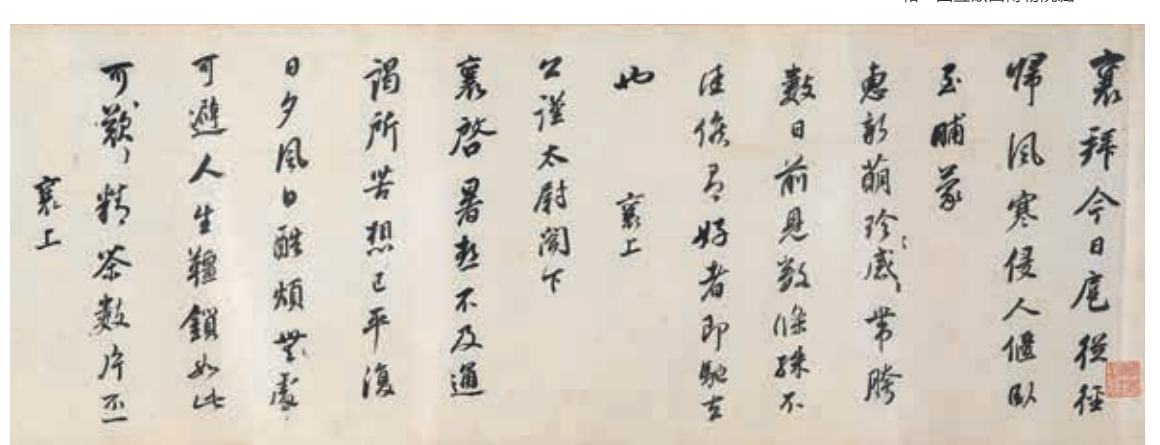 襄拜今日扈從徑
歸風寒侵人偃臥
至晡蒙
惠新萌珍〻感〻帶胯
數日前見數條殊不
佳候有好者即馳去
也 襄上
公謹太尉閣下
襄啓暑熱不及通
謁所苦想已平復
日夕風日酷煩無處
可避人生韁鎖如此
可歎〻精茶數片不一〻
襄上